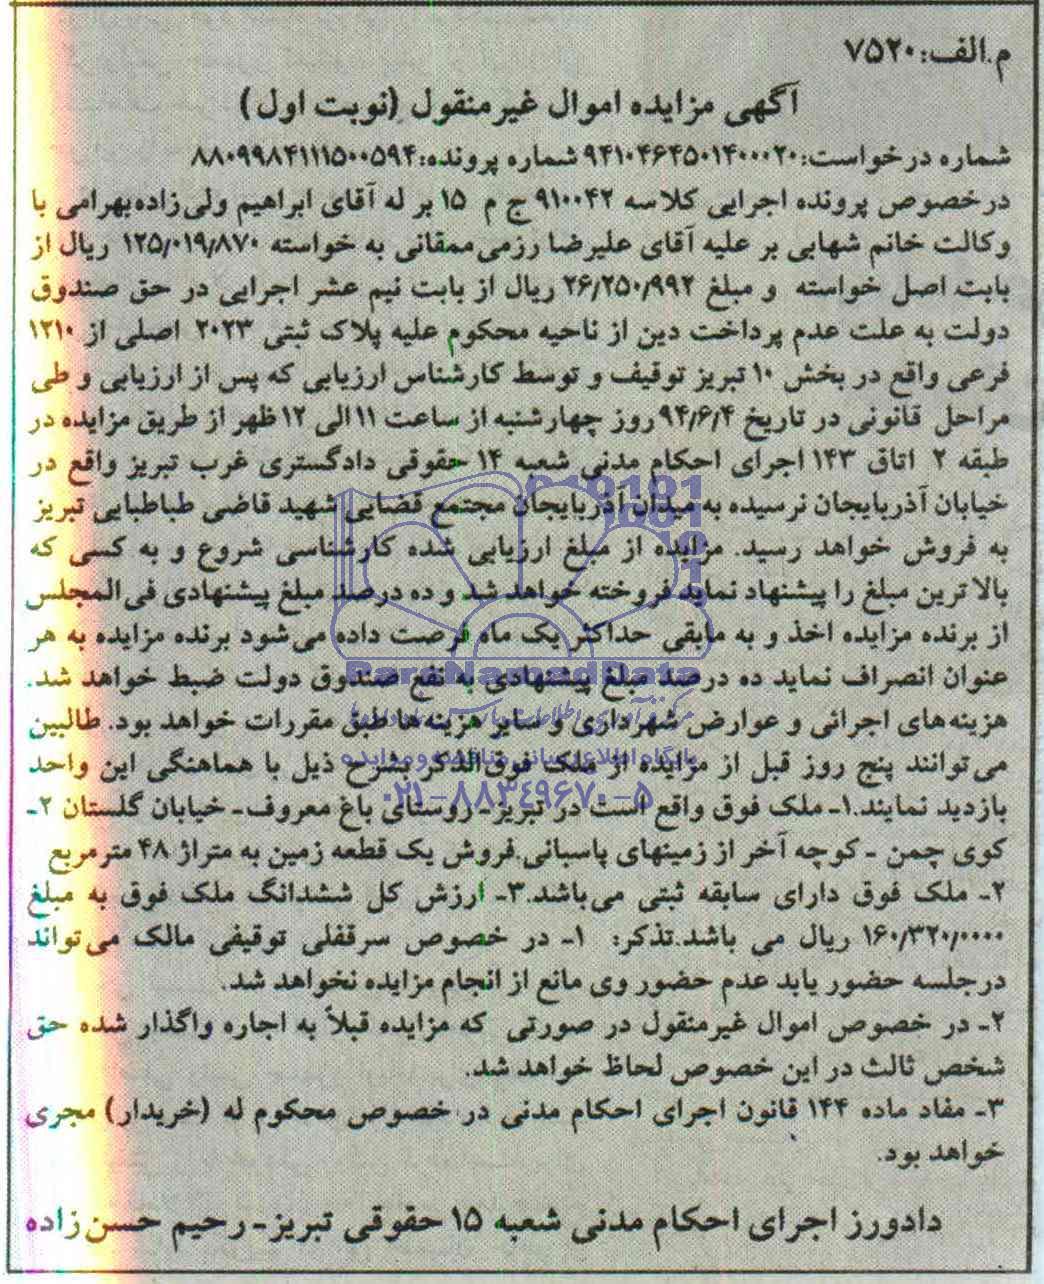 م.الف:۷۵۲۰
آگهی مزایده اموال غیرمنقول (نوبت اول)
شماره درخواست:۹۴۱۰۴۶۴۵۰۱۴۰۰۰۲۰ شماره پرونده:۸۸۰۹۹۸۴۱۱۱۵۰۰۵۹۴
درخصوص پرونده اجرایی کلاسه ۹۱۰۰۴۲ ج م ۱۵ بر له آقای ابراهیم ولی‌زاده‌بهرامی با
وکالت خانم شهابی بر علیه آقای علیرضا رزمی‌ممقانی به خواسته ۱۲۵/۰۱۹/۸۷۰ ریال از
بابت اصل خواسته و مبلغ ۲۶/۲۵۰/۹۹۲ ریال از بابت نیم عشر اجرایی در حق صندوق
دولت به علت عدم پرداخت دین از ناحیه محکوم علیه پلاک ثبتی ۲۰۲۳ اصلی از ۱۲۱۰
فرعی واقع در بخش ۱۰ تبریز توقیف و توسط کارشناس ارزیابی که پس از ارزیابی و طی
مراحل قانونی در تاریخ ۹۴/۶/۴ روز چهارشنبه از ساعت ۱۱ الی ۱۲ ظهر از طریق مزایده در
طبقه ۲ اتاق ۱۴۳ اجرای احکام مدنی شعبه ۱۴ حقوقی دادگستری غرب تبریز واقع در
خیابان آذربایجان نرسیده به میدان آذربایجان مجتمع قضایی شهید قاضی طباطبایی تبریز
به فروش خواهد رسید. مزایده از مبلغ ارزیابی شده کارشناسی شروع و به کسی که
بالا ترین مبلغ را پیشنهاد نماید فروخته خواهد شد و ده درصد مبلغ پیشنهادی فی‌المجلس
از برنده مزایده اخذ و به مابقی حداکثر یک ماه فرصت داده می‌شود برنده مزایده به هر
عنوان انصراف نماید ده درصد مبلغ پیشنهادی به نفع صندوق دولت ضبط خواهد شد.
هزینه‌های اجرائی و عوارض شهرداری و سایر هزینه‌ها طبق مقررات خواهد بود. طالبین
می‌توانند پنج روز قبل از مزایده از ملک فوق‌الذکر بشرح ذیل با هماهنگی این واحد
بازدید نمایند.۱ـ ملک فوق واقع است در تبریزـ روستای باغ معروف‌ـ خیابان گلستان ۲ـ
کوی چمن ـ کوچه آخر از زمینهای پاسبانی.فروش یک قطعه زمین به متراژ ۴۸ مترمربع
۲ـ ملک فوق دارای سابقه ثبتی می‌باشد.۳ـ ارزش کل ششدانگ ملک فوق به مبلغ
۱۶۰/۳۲۰/۰۰۰۰ ریال می باشد.تذکر: ۱ـ در خصوص سرقفلی توقیفی مالک می‌تواند
درجلسه حضور یابد عدم حضور وی مانع از انجام مزایده نخواهد شد.
۲ـ در خصوص اموال غیرمنقول در صورتی که مزایده قبلاً به اجاره واگذار شده حق
شخص ثالث در این خصوص لحاظ خواهد شد.
۳ـ مفاد ماده ۱۴۴ قانون اجرای احکام مدنی در خصوص محکوم له (خریدار) مجری
خواهد بود.
دادورز اجرای احکام مدنی شعبه ۱۵ حقوقی تبریزـ رحیم حسن‌زاده
ParsNamadData
پایگاه اطلاع رسانی مناقصه و مزایده
۰۲۱-۸۸۳۴۹۶۷۰-۵